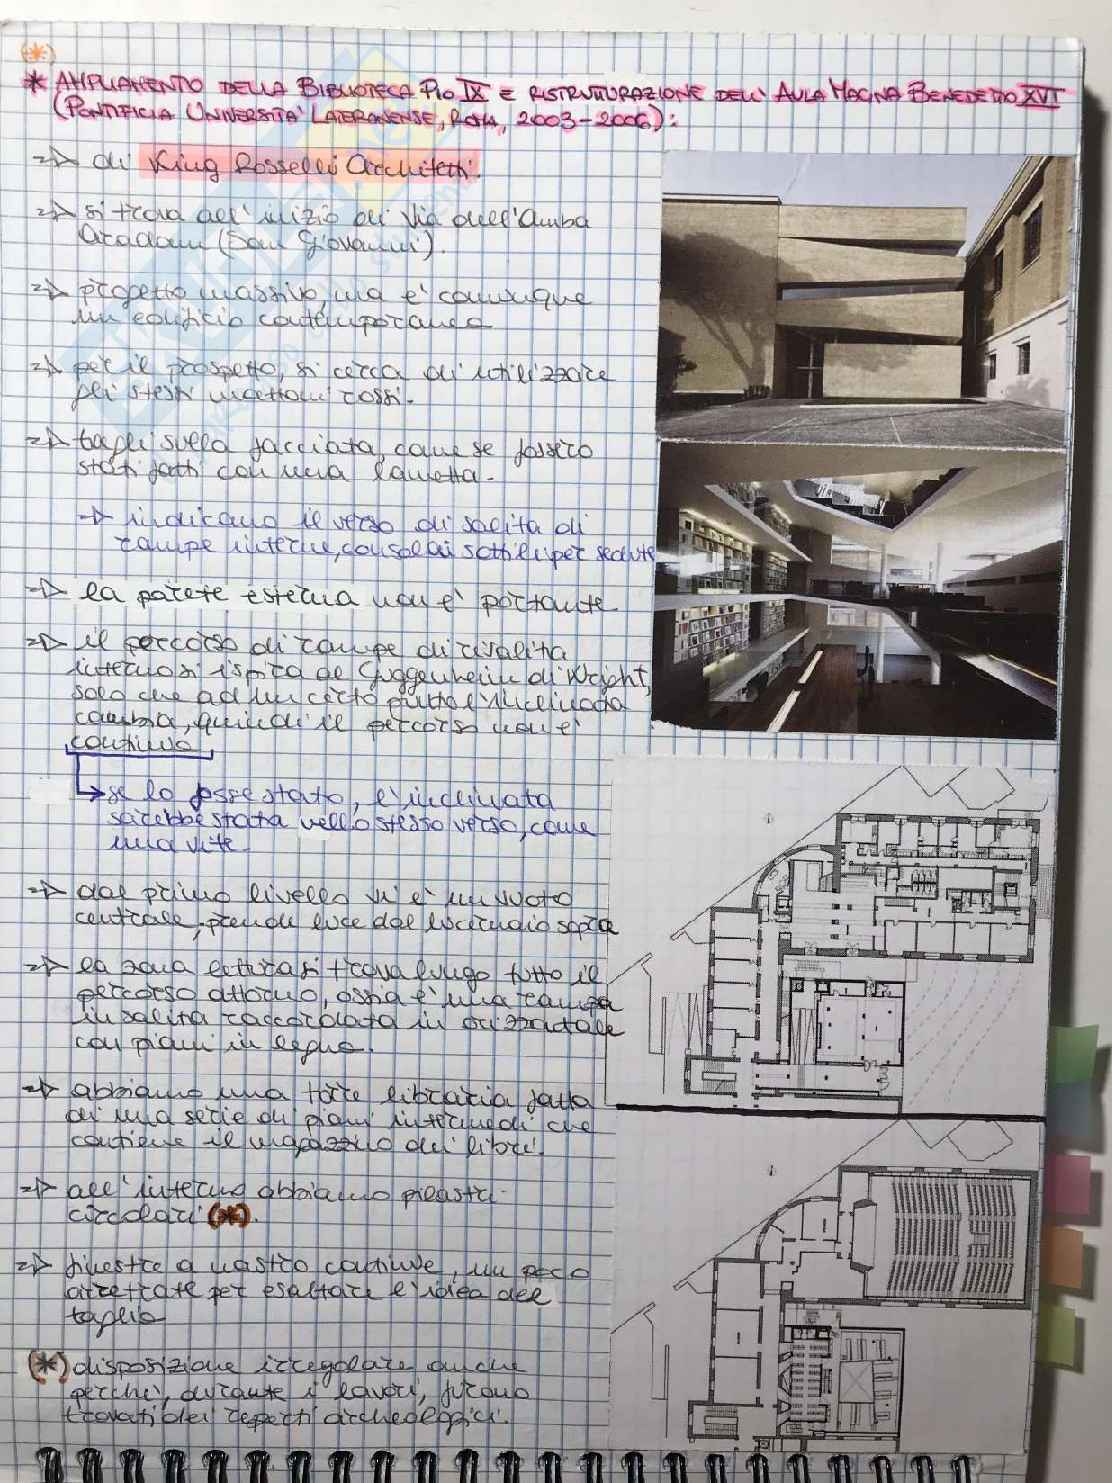 (*)
* AMPLIAMENTO DELLA BIBLIOTECA PIO IX E RISTRUTTURAZIONE DELL'AULA MAGNA BENEDETTO XVI
(PONTIFICIA UNIVERSITA' LATERANENSE, ROMA, 2003-2006):
=> di King Rosselli Architetti.
=> si trova all'inizio di Via dell'Amba
Aradam (San Giovanni).
=> progetto massivo, ma è comunque
un edificio contemporaneo
=> per il prospetto, si cerca di utilizzare
gli stessi mattoni rossi.
=> tagli sulla facciata, come se fossero
stati fatti con una lametta.
-> indicano il verso di salita di
rampe interne, con solai sottili per sedute
=> la parete esterna non è portante.
=> il percorso di rampe di risalita
interno si ispira al Guggenheim di Wright,
solo che ad un certo punto l'inclinata
cambia, quindi il percorso non è
continuo
-> se lo fosse stato, l'inclinata
sarebbe stata nello stesso verso, come
una vite.
=> dal primo livello vi è un vuoto
centrale, prende luce dal lucernaio sopra
=> la zona lettura si trova lungo tutto il
percorso attorno, ossia è una rampa
in salita raccordata in orizzontale
con piani in legno.
=> abbiamo una torre libraria fatta
di una serie di piani intermedi che
contiene il magazzino dei libri.
=> all'interno abbiamo pilastri
circolari (*).
=> finestre a nastro continue, un poco
arretrate per esaltare l'idea del
taglio
(*) disposizione irregolare anche
perchè, durante i lavori, furono
trovati dei reperti archeologici.